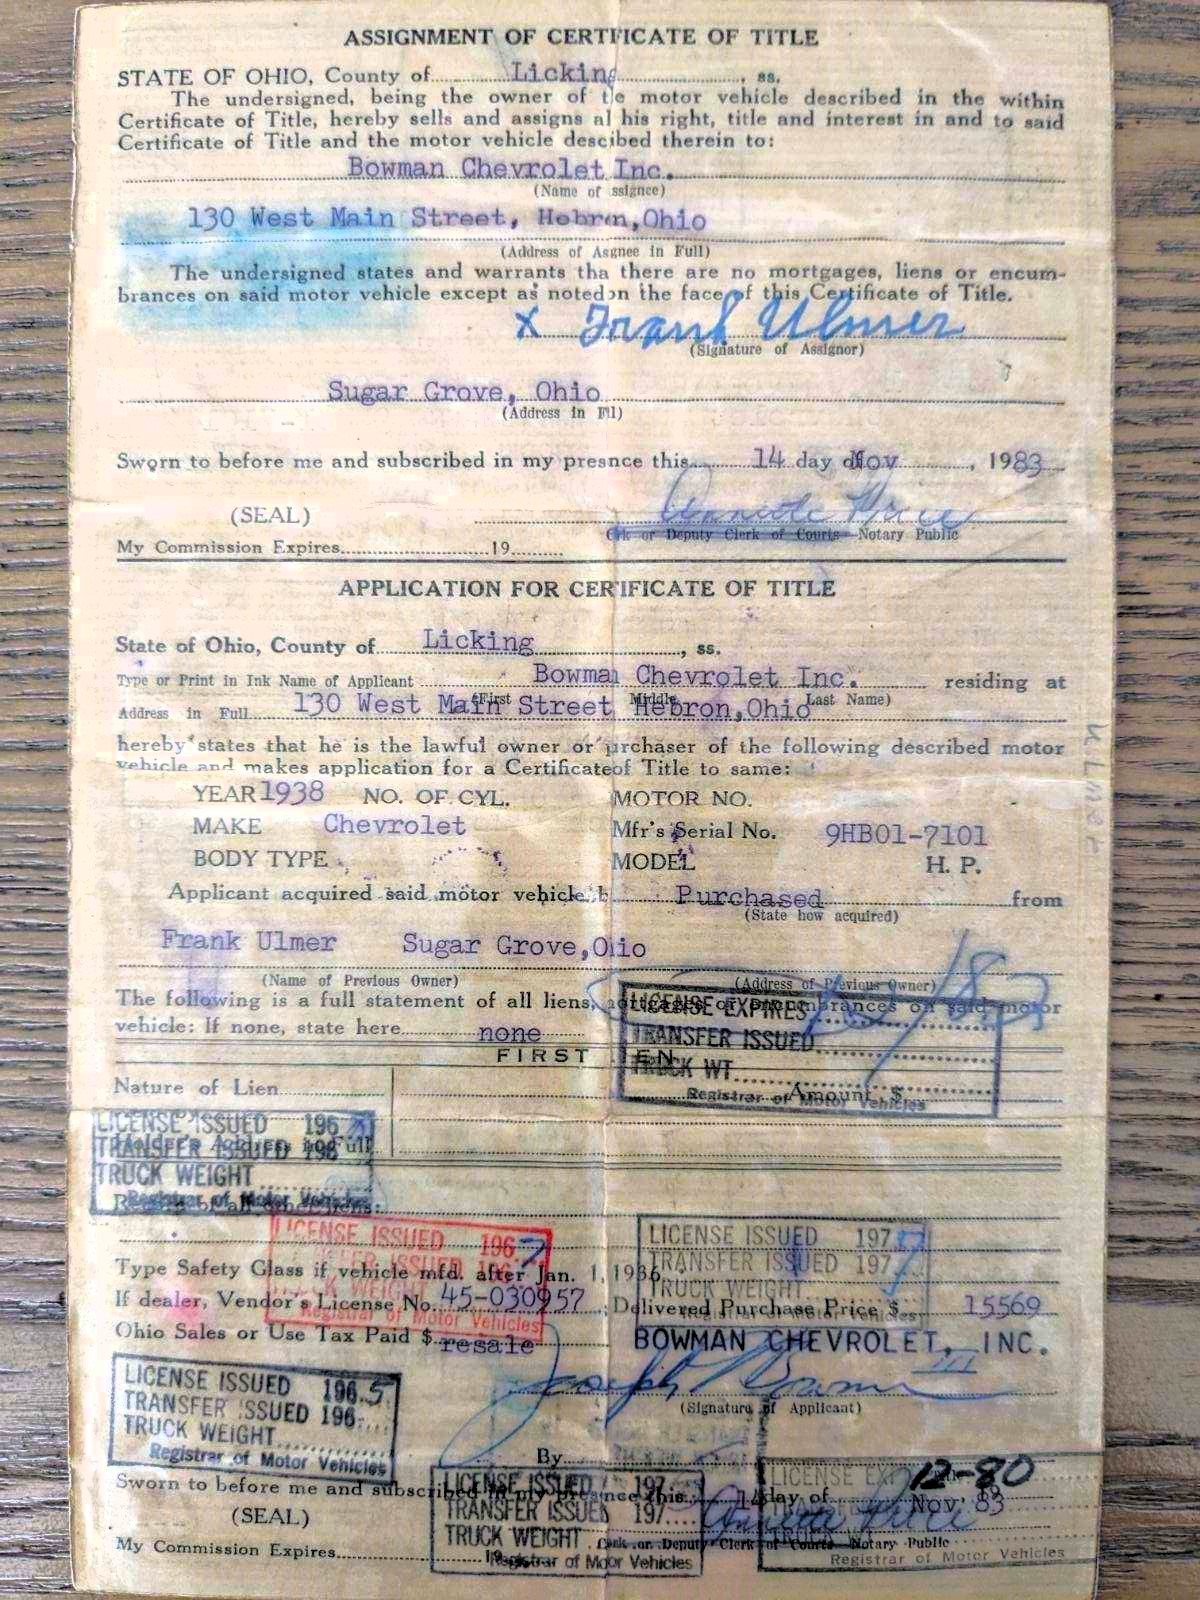 ASSIGNMENT OF CERTIFICATE OF TITLE
STATE OF OHIO, County of Licking, ss.
The undersigned, being the owner of the motor vehicle described in the within
Certificate of Title, hereby sells and assigns al his right, title and interest in and to said
Certificate of Title and the motor vehicle descibed therein to:
Bowman Chevrolet Inc.
(Name of ssignee)
130 West Main Street, Hebron, Ohio
(Address of Asgnee in Full)
The undersigned states and warrants tha there are no mortgages, liens or encum-
brances on said motor vehicle except as noted on the face of this Certificate of Title.
x Frank Ulmer
(Signature of Assignor)
Sugar Grove, Ohio
(Address in Fll)
Sworn to before me and subscribed in my presnce this 14 day of Nov, 1983
(SEAL)
Annette Price
Clrk or Deputy Clerk of Courts Notary Public
My Commission Expires 19
APPLICATION FOR CERTIFICATE OF TITLE
State of Ohio, County of Licking, ss.
Type or Print in Ink Name of Applicant Bowman Chevrolet Inc. residing at
(First Middle Last Name)
Address in Full 130 West Main Street Hebron, Ohio
hereby states that he is the lawful owner or prchaser of the following described motor
vehicle and makes application for a Certificate of Title to same:
YEAR 1938 NO. OF CYL. MOTOR NO.
MAKE Chevrolet Mfr's Serial No. 9HB01-7101
BODY TYPE MODEL H. P.
Applicant acquired said motor vehicle b Purchased from
(State how acquired)
Frank Ulmer Sugar Grove, Ohio
(Name of Previous Owner) (Address of Previous Owner)
The following is a full statement of all liens, mortgages or encumbrances on said motor
vehicle: If none, state here none
LICENSE EXPIRES
TRANSFER ISSUED
TRUCK WT.
Registrar of Motor Vehicles
FIRST LIEN
Nature of Lien Amount $
LICENSE ISSUED 196
TRANSFER ISSUED 196
TRUCK WEIGHT
Registrar of Motor Vehicles
LICENSE ISSUED 1967
TRANSFER ISSUED 196
TRUCK WEIGHT
Registrar of Motor Vehicles
LICENSE ISSUED 197
TRANSFER ISSUED 197
TRUCK WEIGHT
Registrar of Motor Vehicles
Type Safety Glass if vehicle mfd. after Jan. 1, 1936
If dealer, Vendor's License No. 45-030957 Delivered Purchase Price $ 15569
Ohio Sales or Use Tax Paid $ resale BOWMAN CHEVROLET, INC.
Joseph Bowman III
(Signature of Applicant)
LICENSE ISSUED 196.5
TRANSFER ISSUED 196
TRUCK WEIGHT
Registrar of Motor Vehicles
By
12-80
Sworn to before me and subscribed in my presence this 14 day of Nov. 83
LICENSE ISSUED 197
TRANSFER ISSUED 197
TRUCK WEIGHT
Registrar of Motor Vehicles
(SEAL)
Annette Price
Clerk or Deputy Clerk of Courts Notary Public
My Commission Expires 19
Registrar of Motor Vehicles